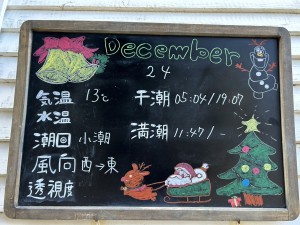 December
24
気温 13℃
水温
潮回 小潮
風向 西→東
透視度
干潮 05:04/19:07
満潮 11:47/-